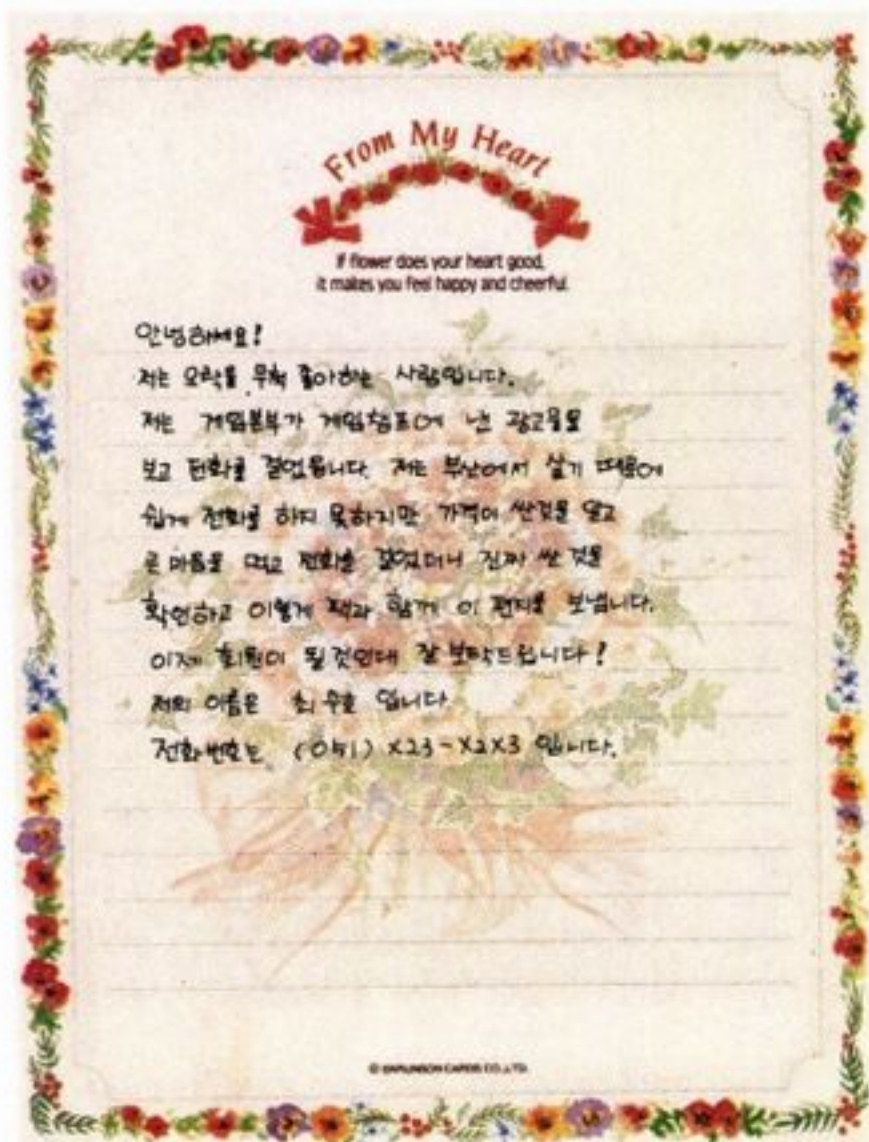 From My Heart
If flower does your heart good,
it makes you feel happy and cheerful.
안녕하세요!
저는 오락을 무척 좋아하는 사람입니다.
저는 게임본부가 게임챔프에 낸 광고을
보고 전화를 걸었읍니다. 저는 부산에서 살기 때문에
쉽게 전화를 하지 못하지만 가격이 싼것을 알고
큰 마음을 먹고 전화를 걸었더니 진짜 싼 것을
확인하고 이렇게 팩과 함께 이 편지를 보냅니다.
이제 회원이 될것인데 잘 부탁드립니다!
저의 이름은 최수호 입니다.
전화번호는 (051) X23-X2X3 입니다.
© BARUNSON CARDS CO.,LTD.